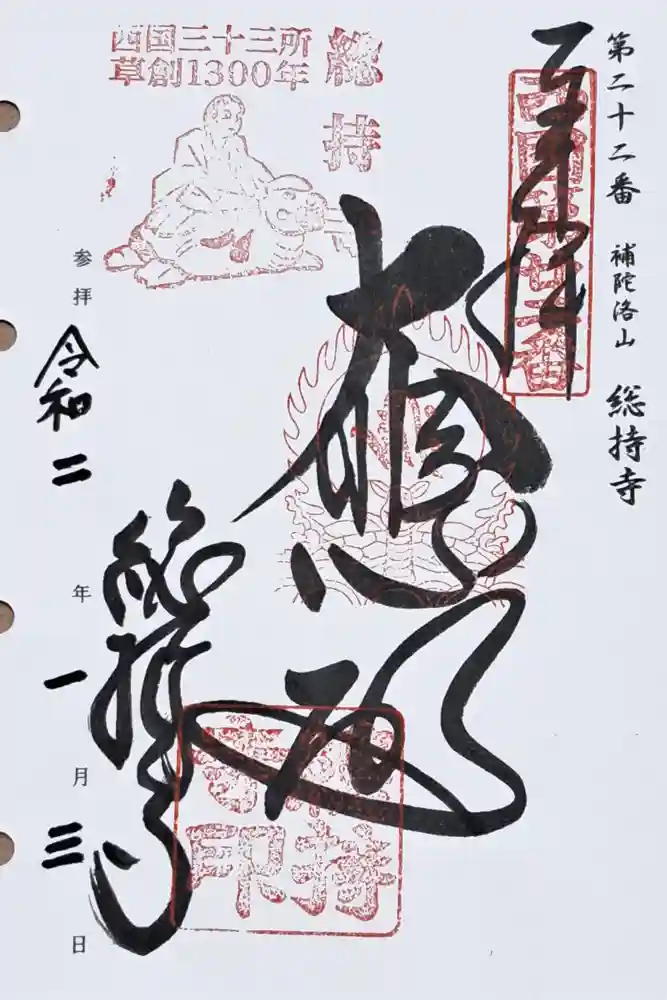 第二十二番 補陀洛山 総持寺
奉拝
西国第廿二番
總持
西国三十三所
草創1300年
総持寺
総持寺印
参拝 令和二年一月三日